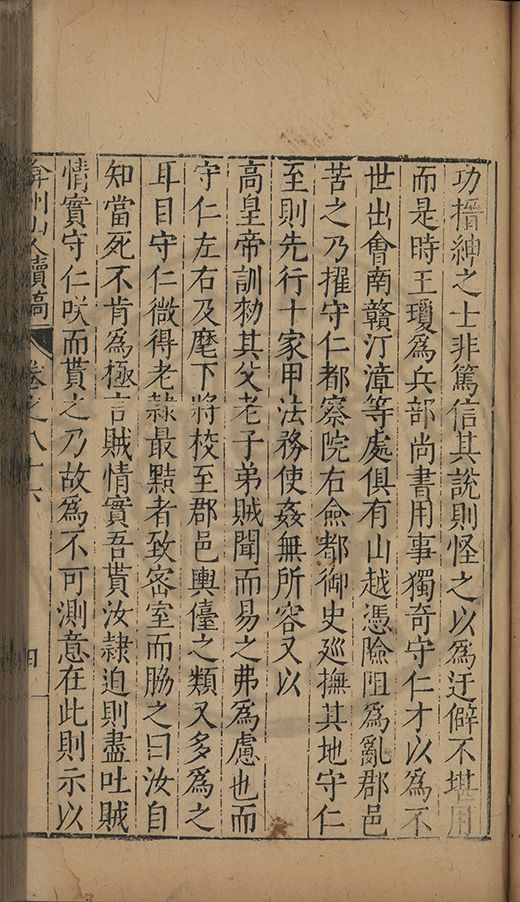 功搢紳之士非篤信其說則怪之以為迂僻不堪用
而是時王瓊為兵部尚書用事獨奇守仁才以為不
世出會南贛汀漳等處俱有山越憑險阻為亂郡邑
苦之乃擢守仁都察院右僉都御史廵撫其地守仁
至則先行十家甲法務使姦無所容又以
高皇帝訓勑其父老子弟賊聞而易之弗為慮也而
守仁左右及麾下將校至郡邑輿儓之類又多為之
耳目守仁微得老隸最黠者致密室而脇之曰汝自
知當死不肯為極言賊情實吾貰汝隸迫則盡吐賊
情實守仁咲而貰之乃故為不可測意在此則示以
弇州山人續稿 卷之八十六 四